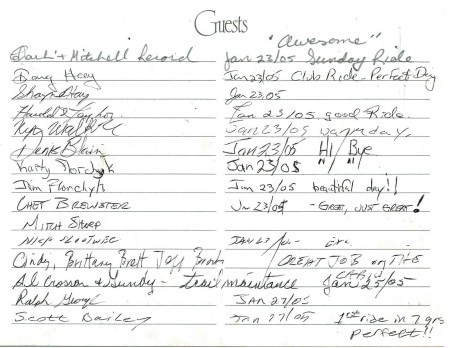 Guests
"Awesome"
& Mitchell Jan 23/05 Sunday Ride
Doug Hay Jan 23/05 Club Ride - Perfect Day
Hay Jan 23,05
Harold Taylor Jan 23/05 good Ride.
Jan 23/05 warm day,
Blain Jan 23/05 Hi / Bye
Jan 23/05 " / "
Jim Jan 23/05 beautiful day!!
Chet Brewster Jan 23/05 - Great, just great!
Mitch Sharp
Jan 23/05
Cindy, Brittany Brett Jeff Great Job on the
Al Crosson & Gundy - trail maintance Cabin Jan 25/05
Ralph George Jan 27/05
Scott Bailey Jan 27/05 1st ride in 7 yrs
perfect!!